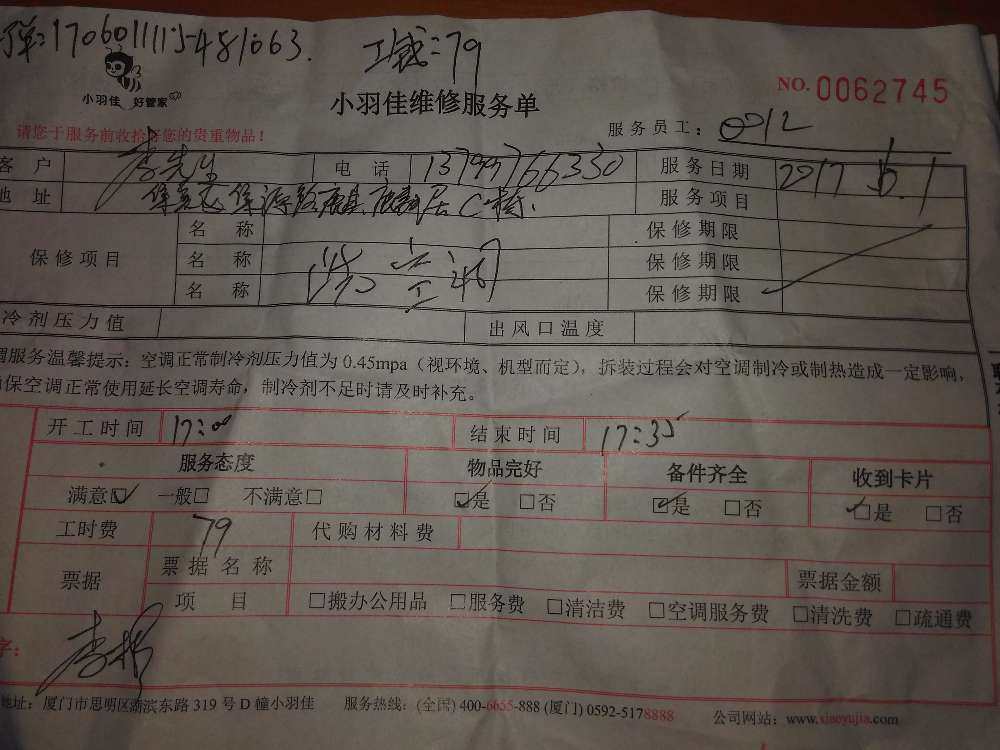 单:1706011115481063. 工钱:79
小羽佳 好管家
小羽佳维修服务单
NO. 0062745
请您于服务前收拾好您的贵重物品!
服务员工: 0212
客户 李先生 电话 13799766330 服务日期 2017 6.1
地址 C栋 服务项目
保修项目 名称 保修期限
名称 保修期限
名称 保修期限
冷剂压力值 出风口温度
调服务温馨提示:空调正常制冷剂压力值为 0.45mpa(视环境、机型而定),拆装过程会对空调制冷或制热造成一定影响,
确保空调正常使用延长空调寿命,制冷剂不足时请及时补充。
开工时间 17:00 结束时间 17:35
服务态度 物品完好 备件齐全 收到卡片
满意☑ 一般□ 不满意□ ☑是 □否 ☑是 □否 ☑是 □否
工时费 79 代购材料费
票据 票据名称 票据金额
项目 □搬办公用品 □服务费 □清洁费 □空调服务费 □清洗费 □疏通费
字:
地址:厦门市思明区湖滨东路 319 号 D 幢小羽佳 服务热线:(全国) 400-6655-888 (厦门) 0592-5178888 公司网站:www.xiaoyujia.com